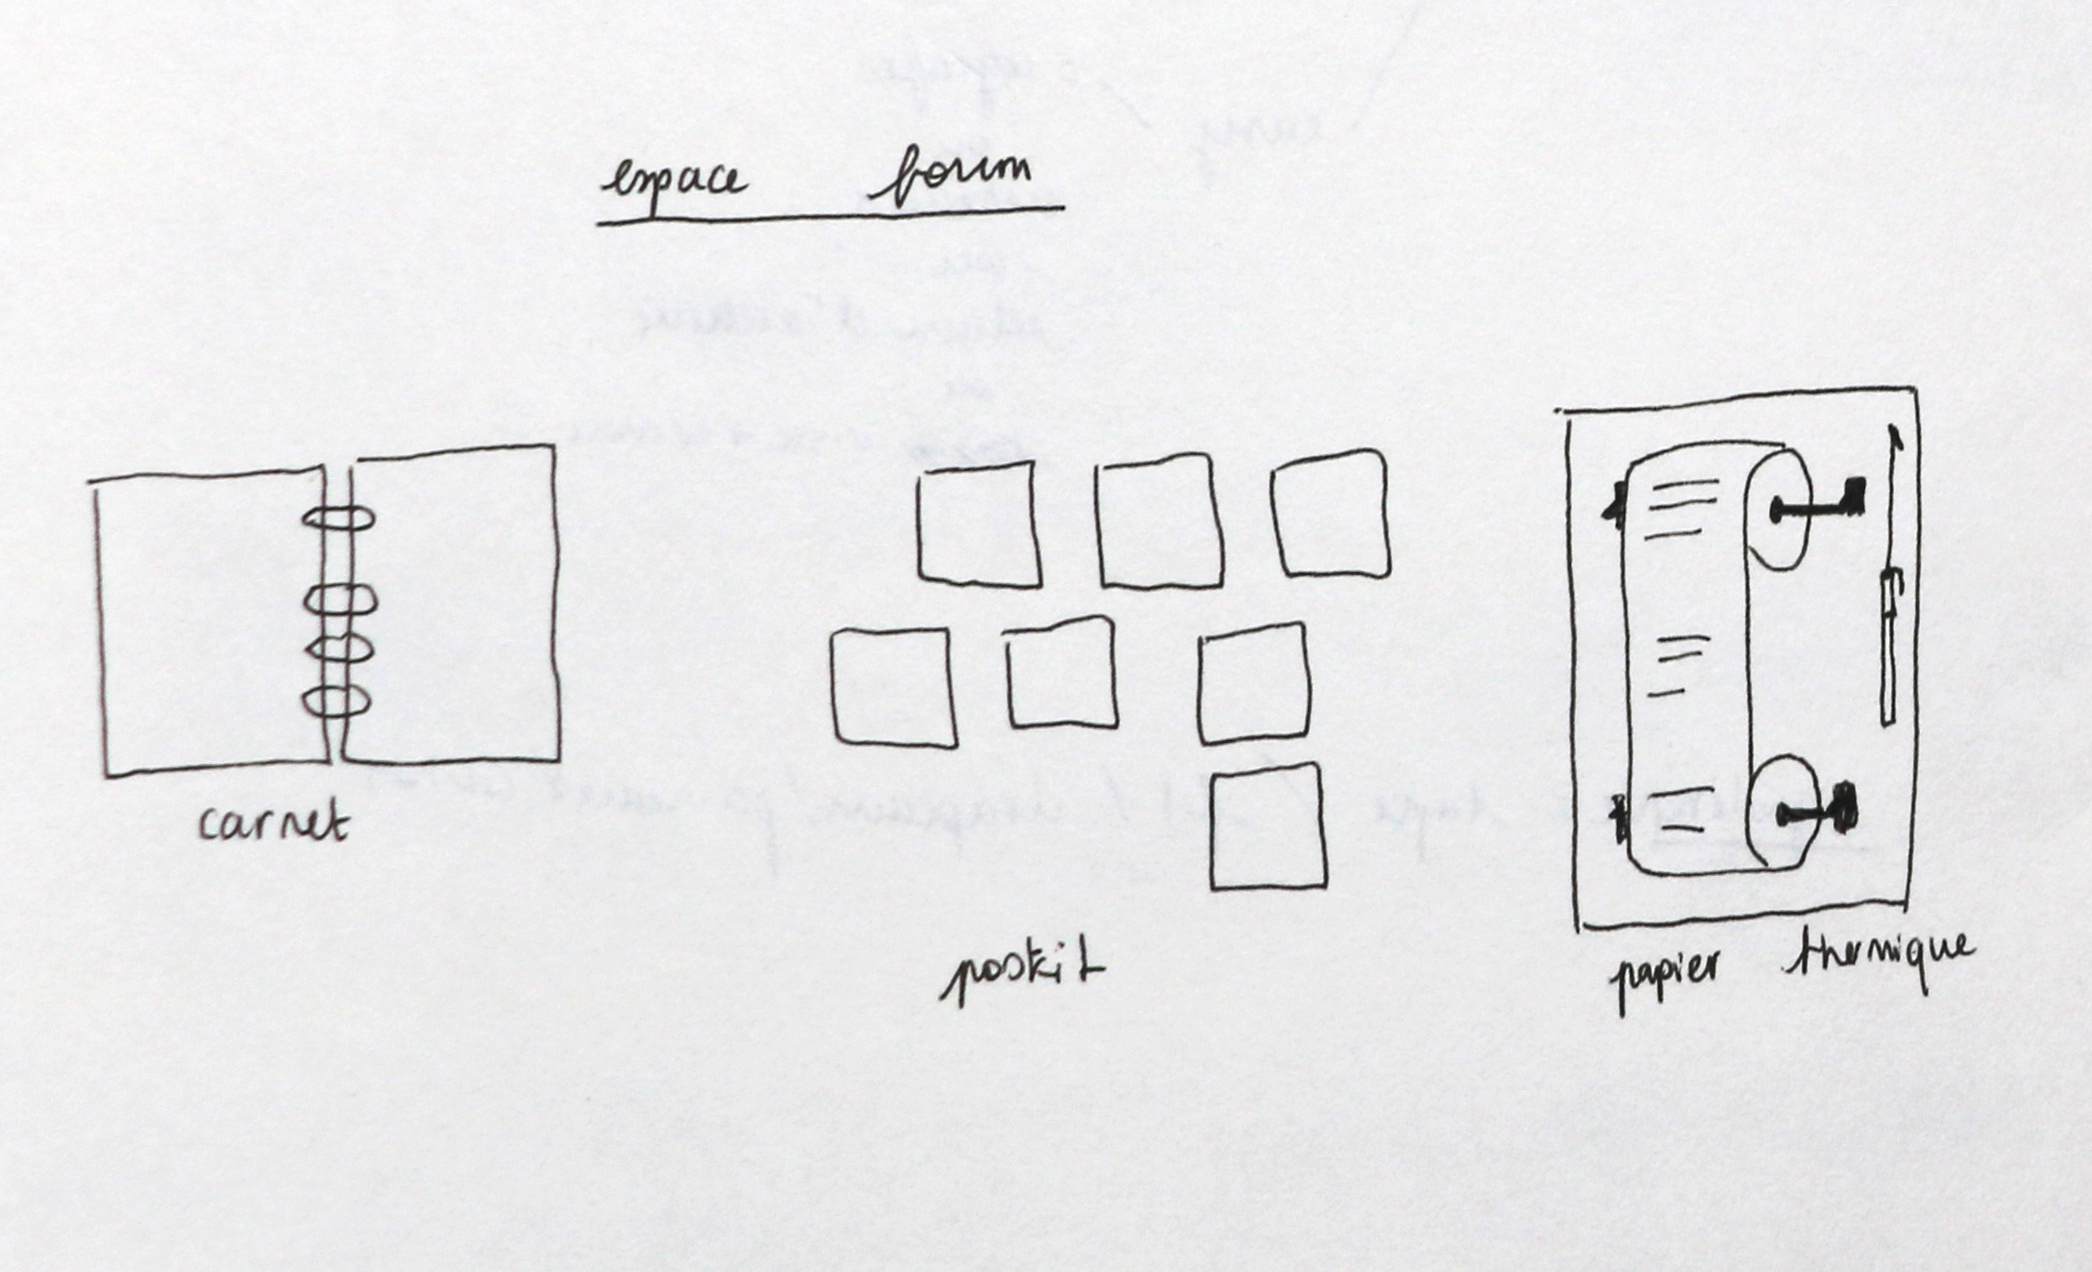 espace forum
carnet
postit
papier thermique